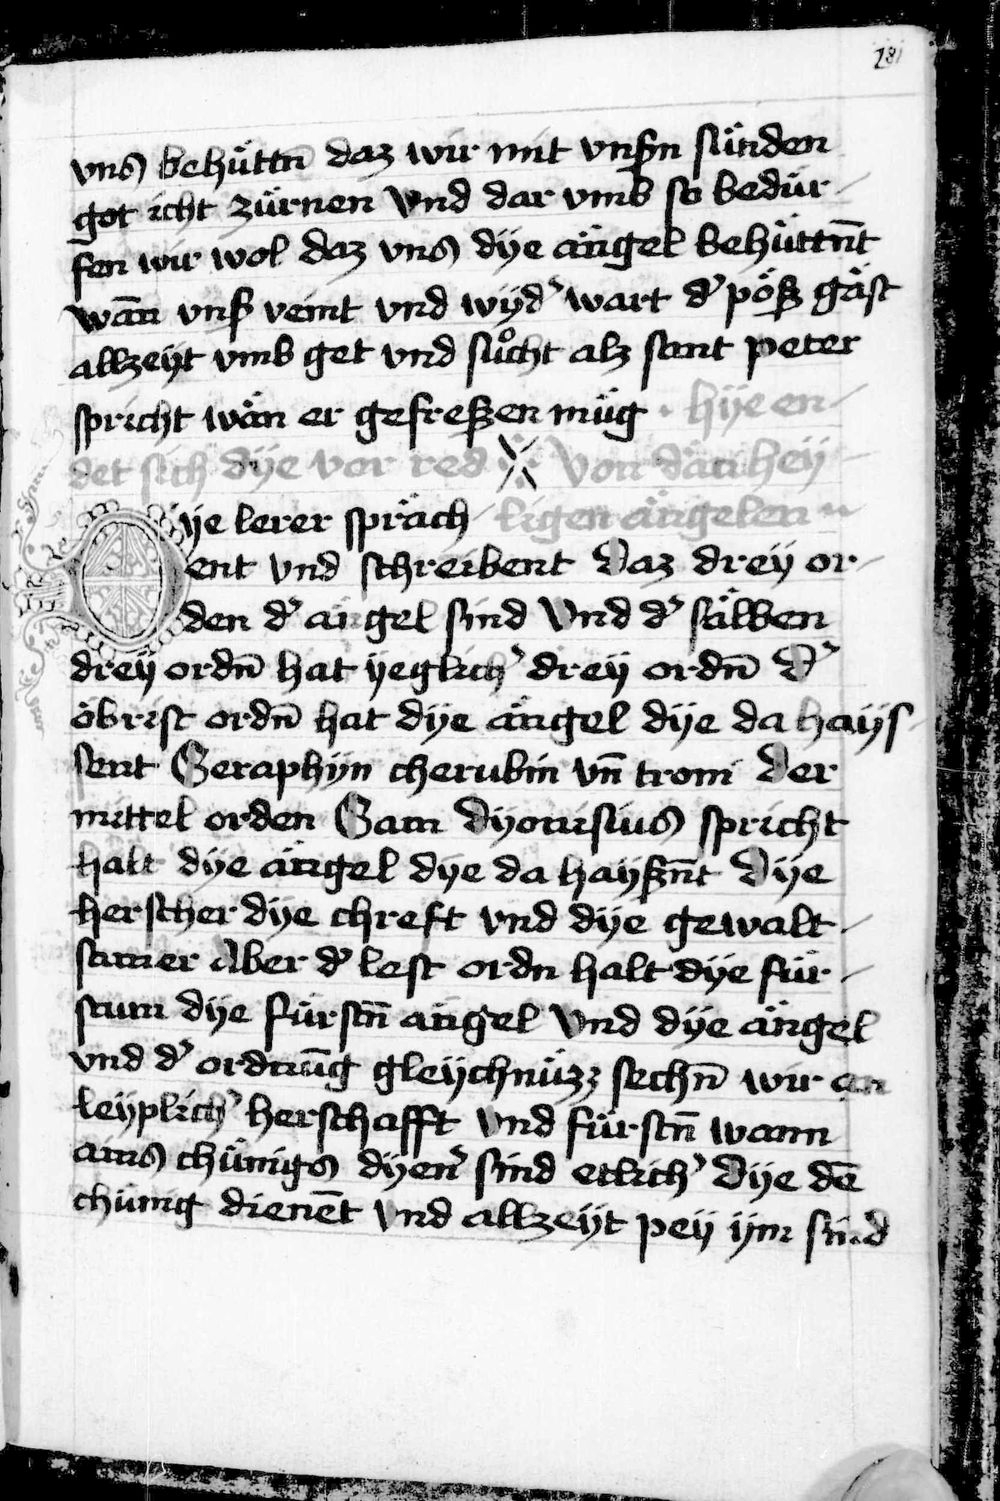 281
vns behüttn̄ daz wir mit vnsn̄ sünden
got icht zürnen Vnd dar vmb so bedür
fen wir wol daz vns dÿe ängel behüttn̄t
wān vnß veint vnd wÿd' wart d' pöß gäst
allzeÿt vmb get vnd suͦcht alz sant peter
spricht wän er gefreßen müg . hÿe en
det sich dÿe vor red Von dan heÿ
ligen ängelen
Dÿe lerer spräch
ent vnd schreibent Daz dreÿ or
den d' ängel sind Vnd d' sälben
dreÿ ordn̄ hat ÿeglich' dreÿ ordn̄ D'
öbrist ordn̄ hat dÿe ängel dÿe da haÿs
sent Seraphÿn cherubin vn̄ troni Der
mittel orden Sam Dÿonisius spricht
halt dÿe ängel dÿe da haÿßn̄t Dÿe
herscher dÿe chreft vnd dÿe gewalt
samer Aber d' lest ordn halt dÿe für
stum dÿe fürstn̄ ängel Vnd dÿe ängel
vnd d' ordnūg gleÿchnüzz sechn̄ wir an
leÿplich' herschafft Vnd fürstn̄ wann
ains chünigs dÿen' sind etlich' Dÿe dē
chünig dienēt Vnd allzeÿt peÿ ÿm sind